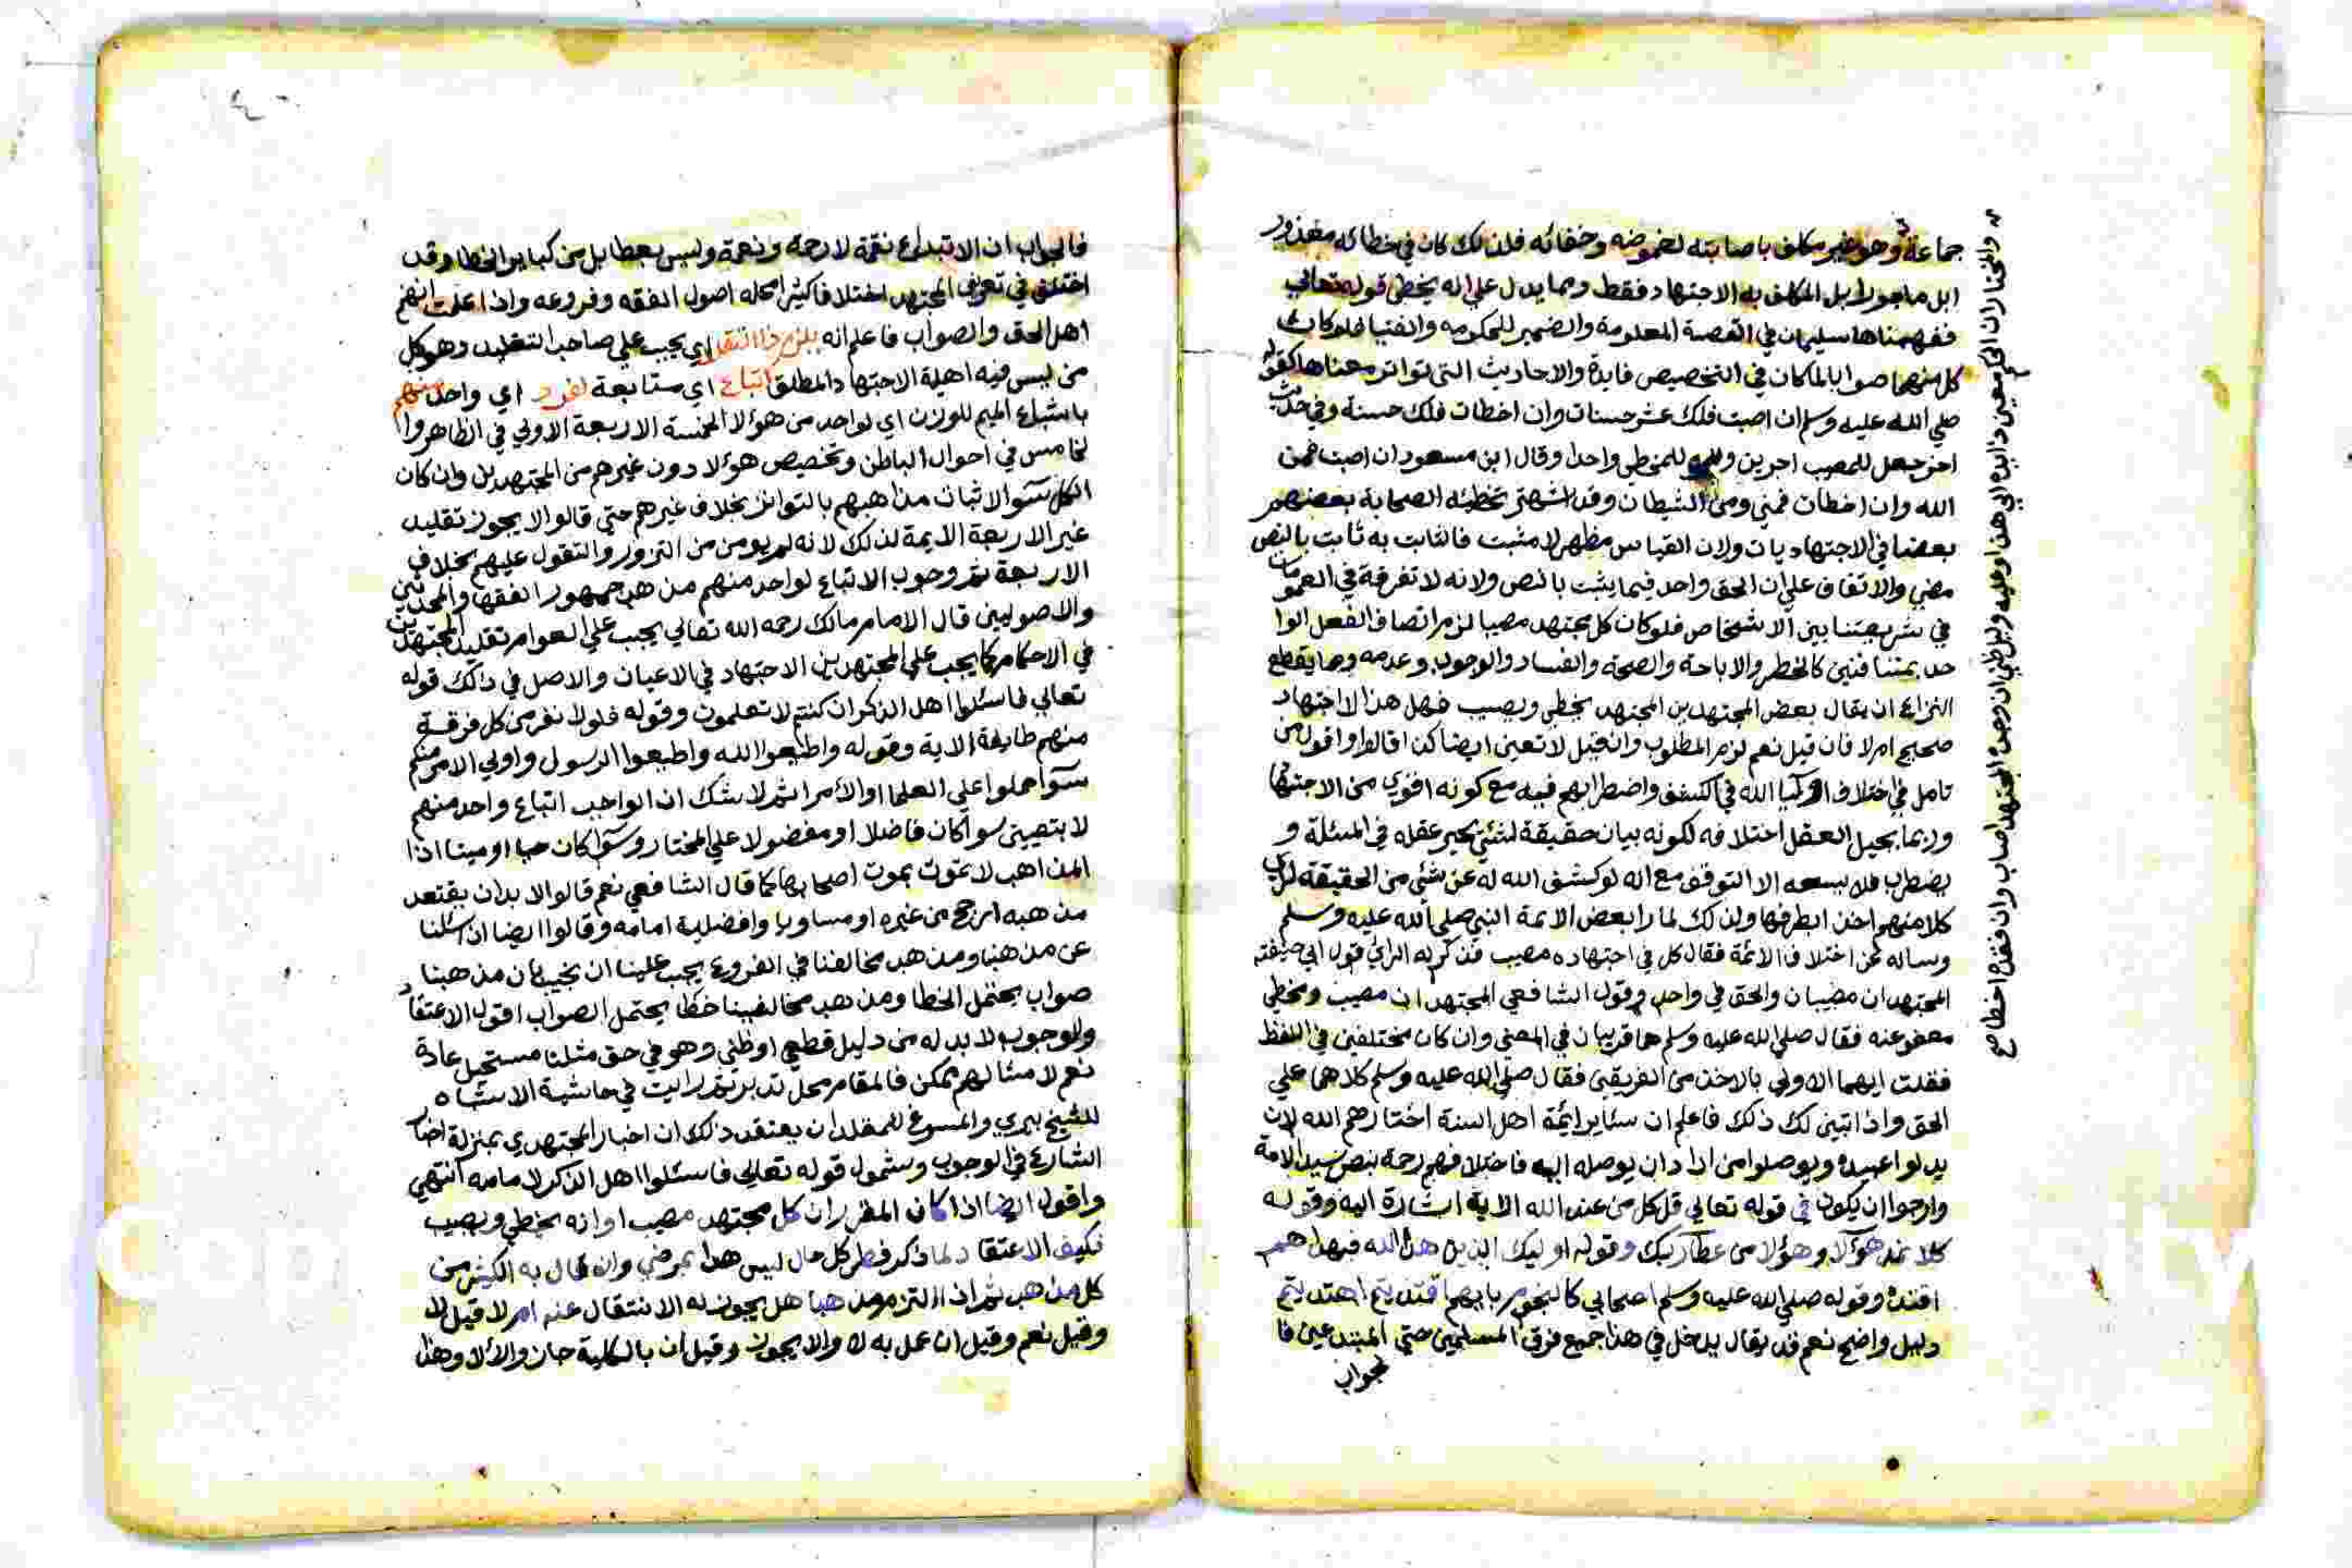 جماعة وهو غير مكلف باصابته لغموضه وخفائه فلذلك كان في خطائه معذور
ابل ماجورا بل المكلف به الاجتهاد فقط ومما يدل على انه يخطى قوله تعالى
ففهمناها سليمان في القصة المعلومة والضمير للحكومه والفتيا فلو كان
كل منهما صوابا لما كان في التخصيص فايدة والاحاديث التى تواتر معناها كقوله
صلي الله عليه وسلم ان اصبت فلك عشر حسنات وان اخطات فلك حسنة وفي حديث
اخر جعل للمصيب اجرين وللمخطي واحدا وقال ابن مسعود ان اصبت فمن
الله وان اخطات فمني ومن الشيطان وقد اشتهر تخطئه الصحابة بعضهم
بعضا في الاجتهاديات ولان القياس مظهر لا مثبت فالثابت به ثابت بالنص
مضي والاتفاق علي ان الحق واحد فيما يثبت بالنص ولانه لا تفرقة في العمومات
في شريعتنا بين الاشخاص فلو كان كل مجتهد مصيبا لزم اتصاف الفعل الوا
حد بمتنافنين كالحظر والاباحة والصحة والفساد والوجوب وعدمه ومما يقطع
النزاع ان يقال بعض المجتهدين المجتهد يخطي ويصيب فهل هذا الاجتهاد
صحيح ام لا فان قيل نعم لزم المطلوب وان قيل لا تعين ايضا كذا قالوا واقول من
تامل في اختلاف اوليا الله في الكشف واضطرابهم فيه مع كونه اقوي من الاجتهاد
وربما يحيل العقل اختلافه لكونه بيان حقيقة لشئ يحير عقله في المسئلة و
يضطرب فلا يسعه الا التوقف مع انه لو كشف الله له عن شئ من الحقيقة لراي
كلا منهم اخذ بطرفها ولذلك لما را بعض الائمة النبي صلي الله عليه وسلم
وساله عن اختلاف الائمة فقال كل في اجتهاده مصيب فذكر له الرائ قول ابي حنيفة
المجتهدان مصيبان والحق في واحد وقول الشافعي المجتهدان مصيب ومخطي
معفو عنه فقال صلي الله عليه وسلم هما قريبان في المعني وان كان مختلفين في اللفظ
فقلت ايهما الاولي بالاخذ من الفريقين فقال صلي الله عليه وسلم كلاهما علي
الحق واذا تبين لك ذلك فاعلم ان سئاير ائمة اهل السنة اختارهم الله لان
يدلوا عبيده ويوصلوا من اراد ان يوصله اليه فاختلافهم رحمة بنص سيد الامة
وارجوا ان يكون في قوله تعالي قل كل من عند الله الاية اشارة اليه وقوله
كلا نمد هؤلا وهؤلا من عطا ربك وقوله اوليك الذين هدا الله فبهداهم
اقتده وقوله صلي الله عليه وسلم اصحابي كالنجوم بايهم اقتديتم اهتديتم
دليل واضح نعم قد يقال يدخل في هذا جميع فرق المسلمين حتي المبتدعين فا
لجواب
والمختار ان الحكم معين دايره الي هذا وعليه دليل ظني ان وجده المجتهد اصاب وان فقده اخطا صح
فالجواب ان الابتداع نقمة لا رحمة ونعمة وليس بعطا بل من كباير الخطا وقد
اختلف في تعريف المجتهد اختلافا كثيرا محله اصول الفقه وفروعه واذا علمت انهم
اهل الحق والصواب فاعلم انه يلزم ذا التقليد اي يجب علي صاحب التقليد وهو كل
من ليس فيه اهلية الاجتهاد المطلق اتباع اي متابعة لفرد اي واحد منهم
باشباع الميم للوزن اي لواحد من هؤلا الخمسة الاربعة الاولي في الظاهر وا
لخامس في احوال الباطن وتخصيص هؤلا دون غيرهم من المجتهدين وان كان
الكل سوا لاثبات مذاهبهم بالتواتر بخلاف غيرهم حتي قالوا لا يجوز تقليد
غير الاربعة الايمة لذلك لانه لم يومن من التزور والتقول عليهم بخلاف
الاربعة ثم وجوب الاتباع لواحد منهم مذهب جمهور الفقها والمحدثين
والاصوليين قال الامام مالك رحمه الله تعالي يجب علي العوام تقليد المجتهدين
في الاحكام كما يجب علي المجتهدين الاجتهاد في الاعيان والاصل في ذالك قوله
تعالي فاسئلوا اهل الذكر ان كنتم لا تعلمون وقوله فلولا نفر من كل فرقة
منهم طايفة الاية وقوله واطيعوا الله واطيعوا الرسول واولي الامر منكم
سوا حملوا علي العلما او الأمرا ثم لا شك ان الواجب اتباع واحد منهم
لا بتعيين سوا كان فاضلا او مفضولا علي المختار وسوا كان حيا او ميتا اذا
المذاهب لا تموت بموت اصحابها كما قال الشافعي نعم قالوا لا بد ان يعتقد
مذهبه ارجح من غيره او مساويا وافضلية امامه وقالوا ايضا اذا سئلنا
عن مذهبنا ومذهب مخالفنا في الفروع يجب علينا ان نجيب بان مذهبنا
صواب يحتمل الخطا ومذهب مخالفينا خطا يحتمل الصواب اقول الاعتقاد
ولوجوب لا بد له من دليل قطعي او ظني وهو في حق مثلنا مستحيل عادة
نعم لامثالهم ممكن فالمقام محل تدبر ثم رايت في حاشية الاشباه
للشيخ بيري والمسوغ للمقلد ان يعتقد ذلك ان اخبار المجتهدي بمنزلة اخبار
الشارع في الوجوب وشمول قوله تعالي فاسئلوا اهل الذكر لامامه انتهي
واقول ايضا اذا كان المقرر ان كل مجتهد مصيب او انه يخطي ويصيب
فكيف الاعتقاد لما ذكر فطر كل حال ليس هذا بمرضي وان قال به الكثير من
كل مذهب ثم اذا التزم مذهبا هل يجوز له الانتقال عنه ام لا قيل لا
وقيل نعم وقيل ان عمل به لا والا يجوز وقيل ان بالكلية جاز والا لا وهذا